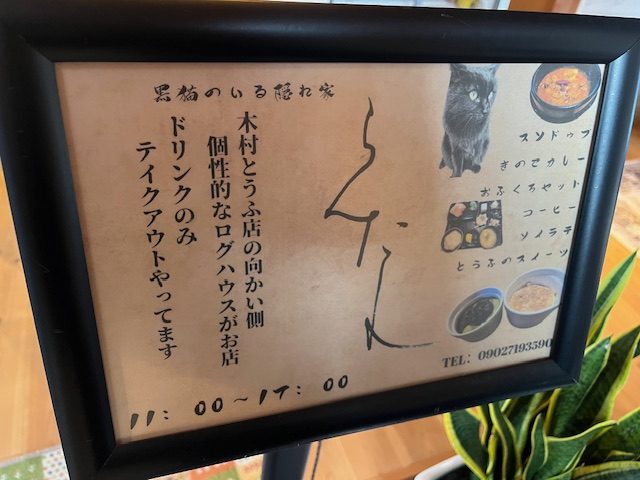 黒猫のいる隠れ家
らんたん
木村とうふ店の向かい側
個性的なログハウスがお店
ドリンクのみ
テイクアウトやってます
スンドゥブ
きのこカレー
おふくろセット
コーヒー
ソイラテ
とうふのスイーツ
TEL: 09027193590
11：00～17：00